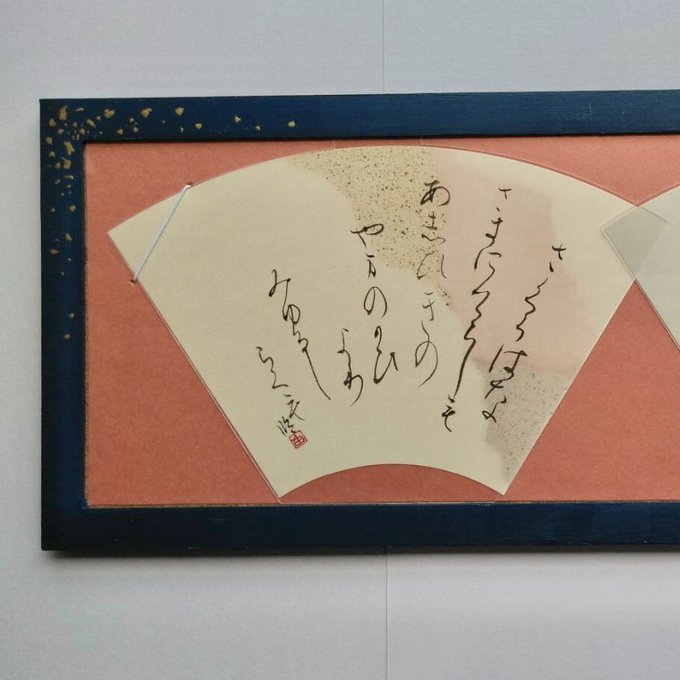 さくらはな
さきにけらしも
あしひきの
やまのかひ
より
みゆるし